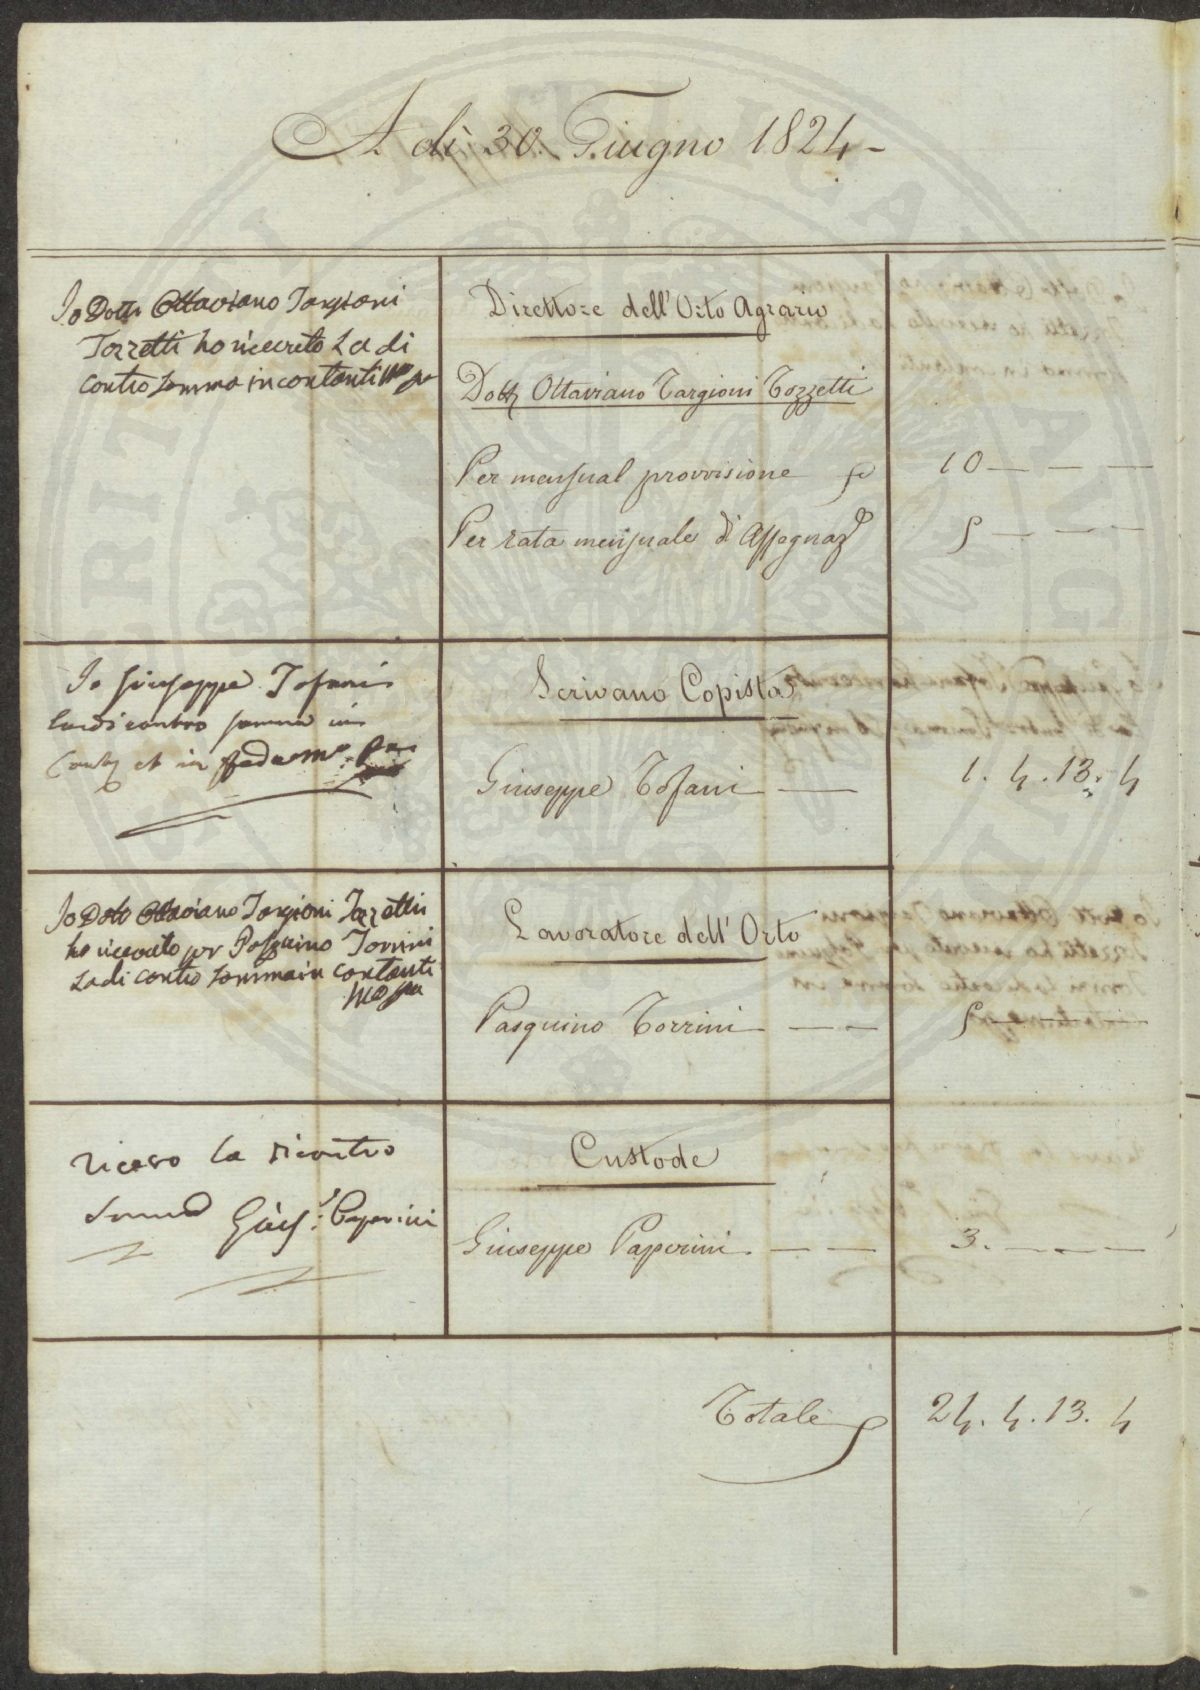 A dì 30. Giugno 1824-
Io Dott. Ottaviano Targioni
Tozzetti ho ricevuto La di
contro somma in contanti Mo pa
Direttore dell'Orto Agrario
Dott Ottaviano Targioni Tozzetti
Per mensual provvisione 10 — — —
Per rata mensuale d'Assegnaz.e 5 — — —
Io Giuseppe Tofani
la di contro somma in
et in fede Mo. Pa
Scrivano Copista
Giuseppe Tofani — 1. 4. 13. 4
Io Dott Ottaviano Targioni Tozzetti
ho ricevuto per Pasquino Torrini
La di contro somma in contanti
Mo pa
Lavoratore dell'Orto
Pasquino Torrini — — 5 — — —
ricevo la di contro
somma Gius.e Paperini
Custode
Giuseppe Paperini — — 3. — — —
Totale 24. 4. 13. 4